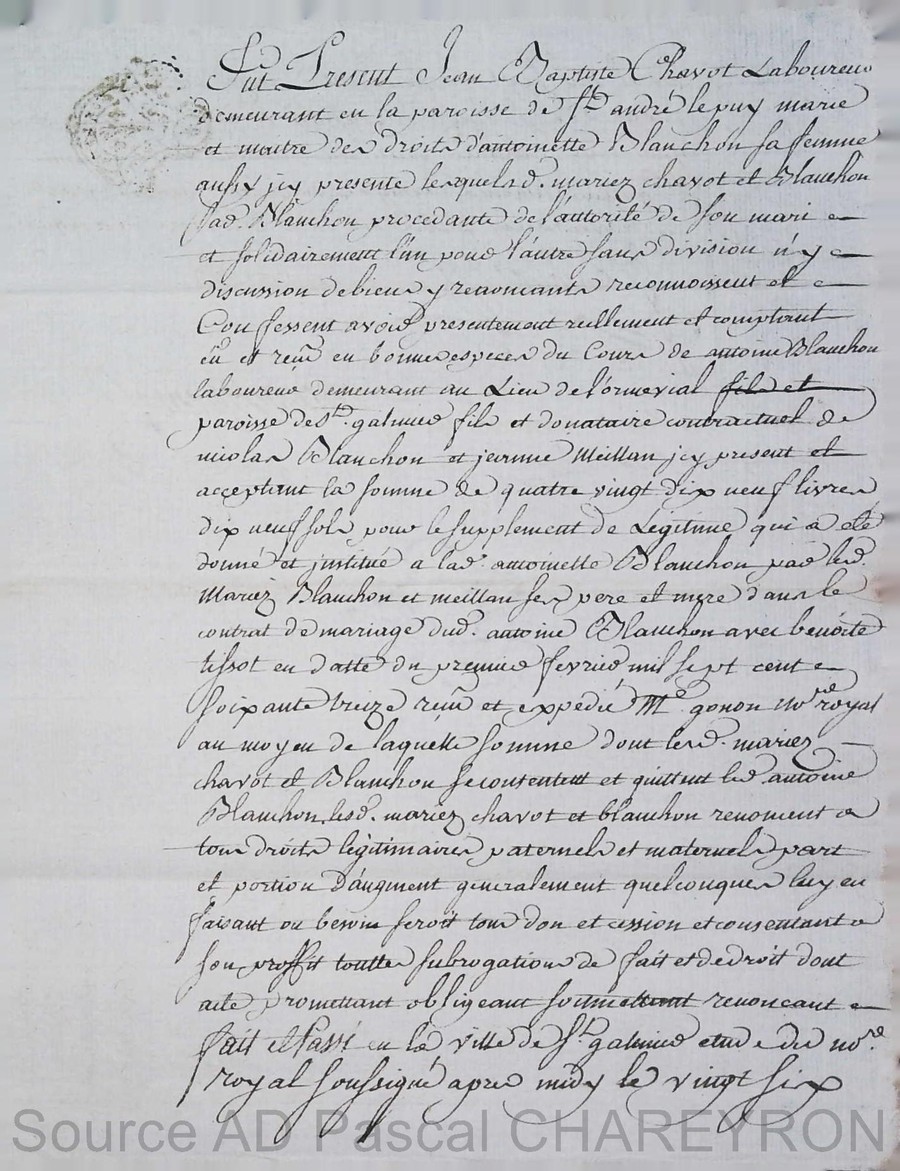 Fut Present Jean Baptiste Chavot Laboureur
demeurant en la paroisse de St. andré le puy marie
et maitre des droits d'antoinette Blanchon sa femme
aussy jcy presente lesquels d. mariez chavot et Blanchon
lad. Blanchon procedante de l'autorité de son mari
et solidairement l'un pour l'autre sans division n'y
discussion de biens y renoncants reconnoissent et
Confessent avoir presentement réellement et comptant
eu et reçu en bonnes especes du Cours de antoine Blanchon
laboureur demeurant au Lieu de l'ormevial fils et
paroisse de St. galmier fils et donataire contractuel de
nicolas Blanchon et jeanne Meillan jcy present et
acceptant la somme de quatre vingt dix neuf livres
dix neuf sols pour le supplement de Legitime qui a eté
donné et jnstitué a lad. antoinette Blanchon par lesd.
Mariez Blanchon et meillan ses pere et mere dans le
contrat de mariage dud. antoine Blanchon avec benoite
tissot en datte du premier fevrier mil sept cent
soixante treize reçu et expedié Me. gonon nore royal
au moyen de laquelle somme dont lesd. mariez
chavot et Blanchon se contentent et quittent led. antoine
Blanchon lesd. mariez chavot et blanchon renoncent a
tous droits légitimaires paternels et maternels part
et portion d'augment generalement quelconques luy en
faisant ou besoin seroit tout don et cession et consentant a
son proffit toutte subrogation de fait et de droit dont
acte promettant obligeant soumettant renonçant
fait et Passé en la ville de St. galmier etude du nore.
royal soussigné apres midy le vingt six
Source AD Pascal CHAREYRON